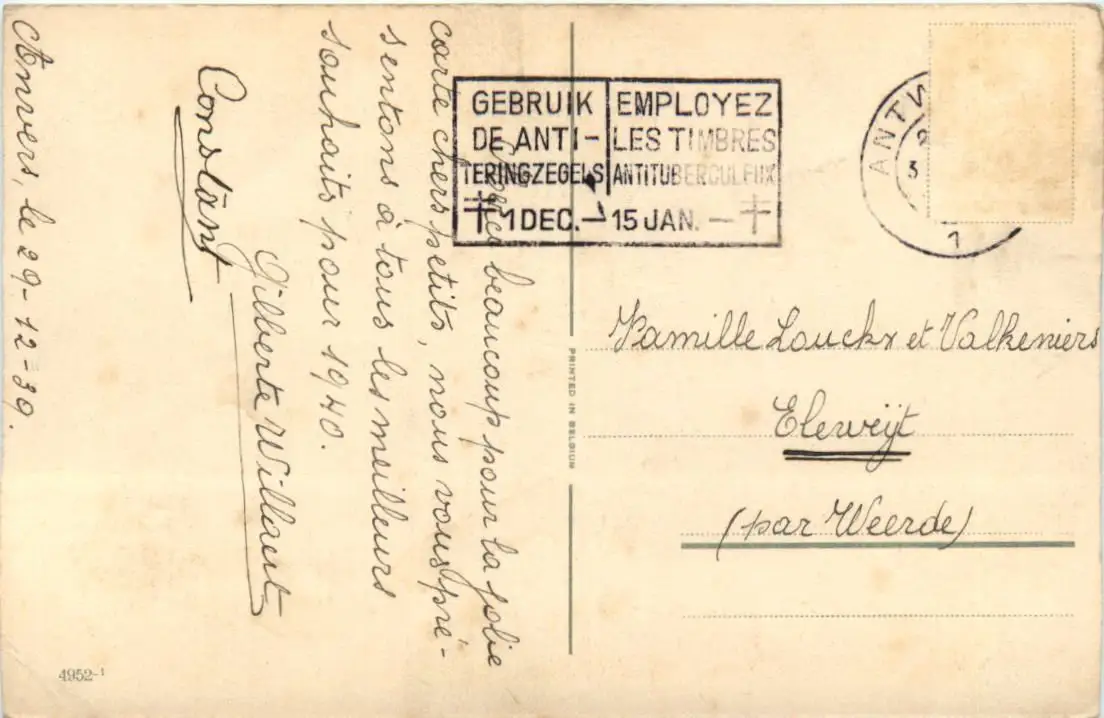 Merci beaucoup pour la jolie
carte chers petits, nous vous pré-
sentons à tous les meilleurs
souhaits pour 1940.
Gilberte Willaert
Constant
Anvers, le 29-12-39.
4952-1
PRINTED IN BELGIUM
GEBRUIK
DE ANTI-
TERINGZEGELS
EMPLOYEZ
LES TIMBRES
ANTITUBERCULEUX
1 DEC. – 15 JAN. –
ANTW
3
1
Famille Louckx et Valkeniers
Eleweÿt
(par Weerde)